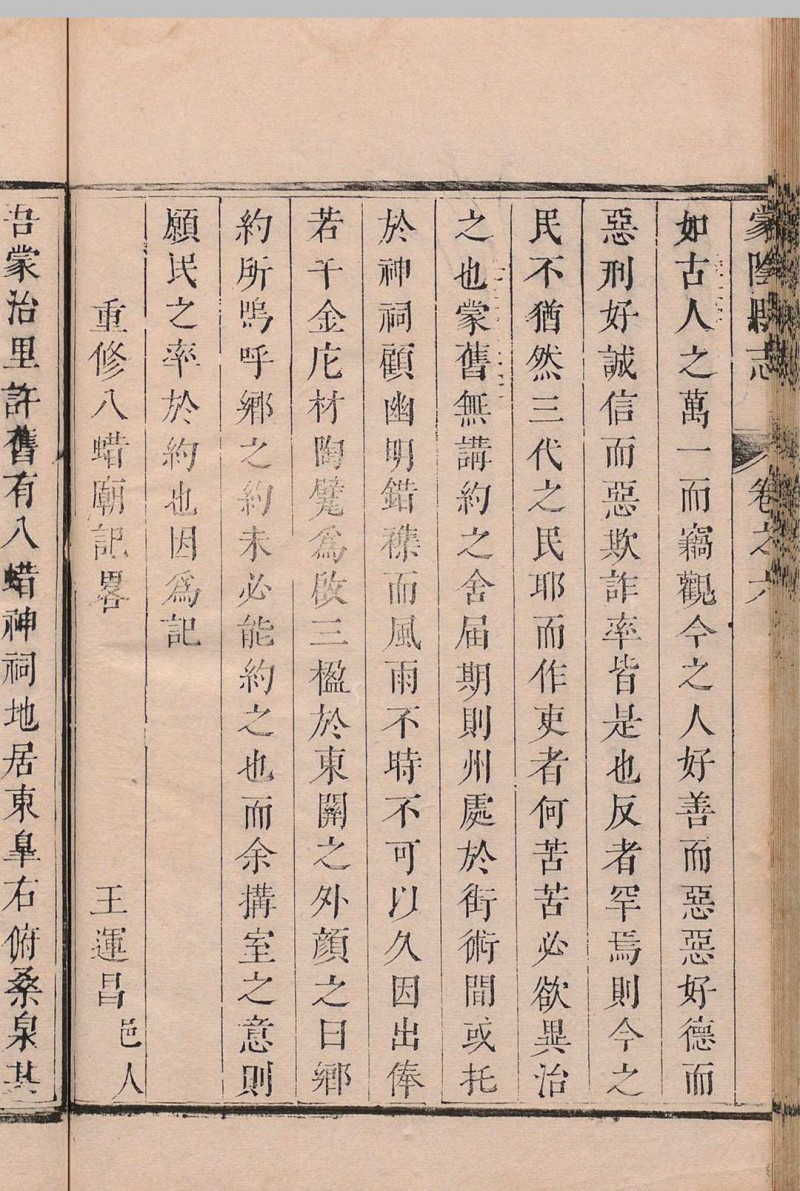 蒙陰縣志 卷之六
如古人之萬一而竊觀今之人好善而惡惡好德而
惡刑好誠信而惡欺詐率皆是也反者罕焉則今之
民不猶然三代之民耶而作吏者何苦苦必欲異治
之也蒙舊無講約之舍届期則州處於街術間或托
於神祠顧幽明錯襍而風雨不時不可以久因出俸
若干金庀材陶甓為啟三楹於東關之外顔之曰鄉
約所嗚呼鄉之約未必能約之也而余搆室之意則
願民之率於約也因為記
重修八蜡廟記畧 王運昌邑人
吾蒙治里許舊有八蜡神祠地居東臯右俯桑泉其